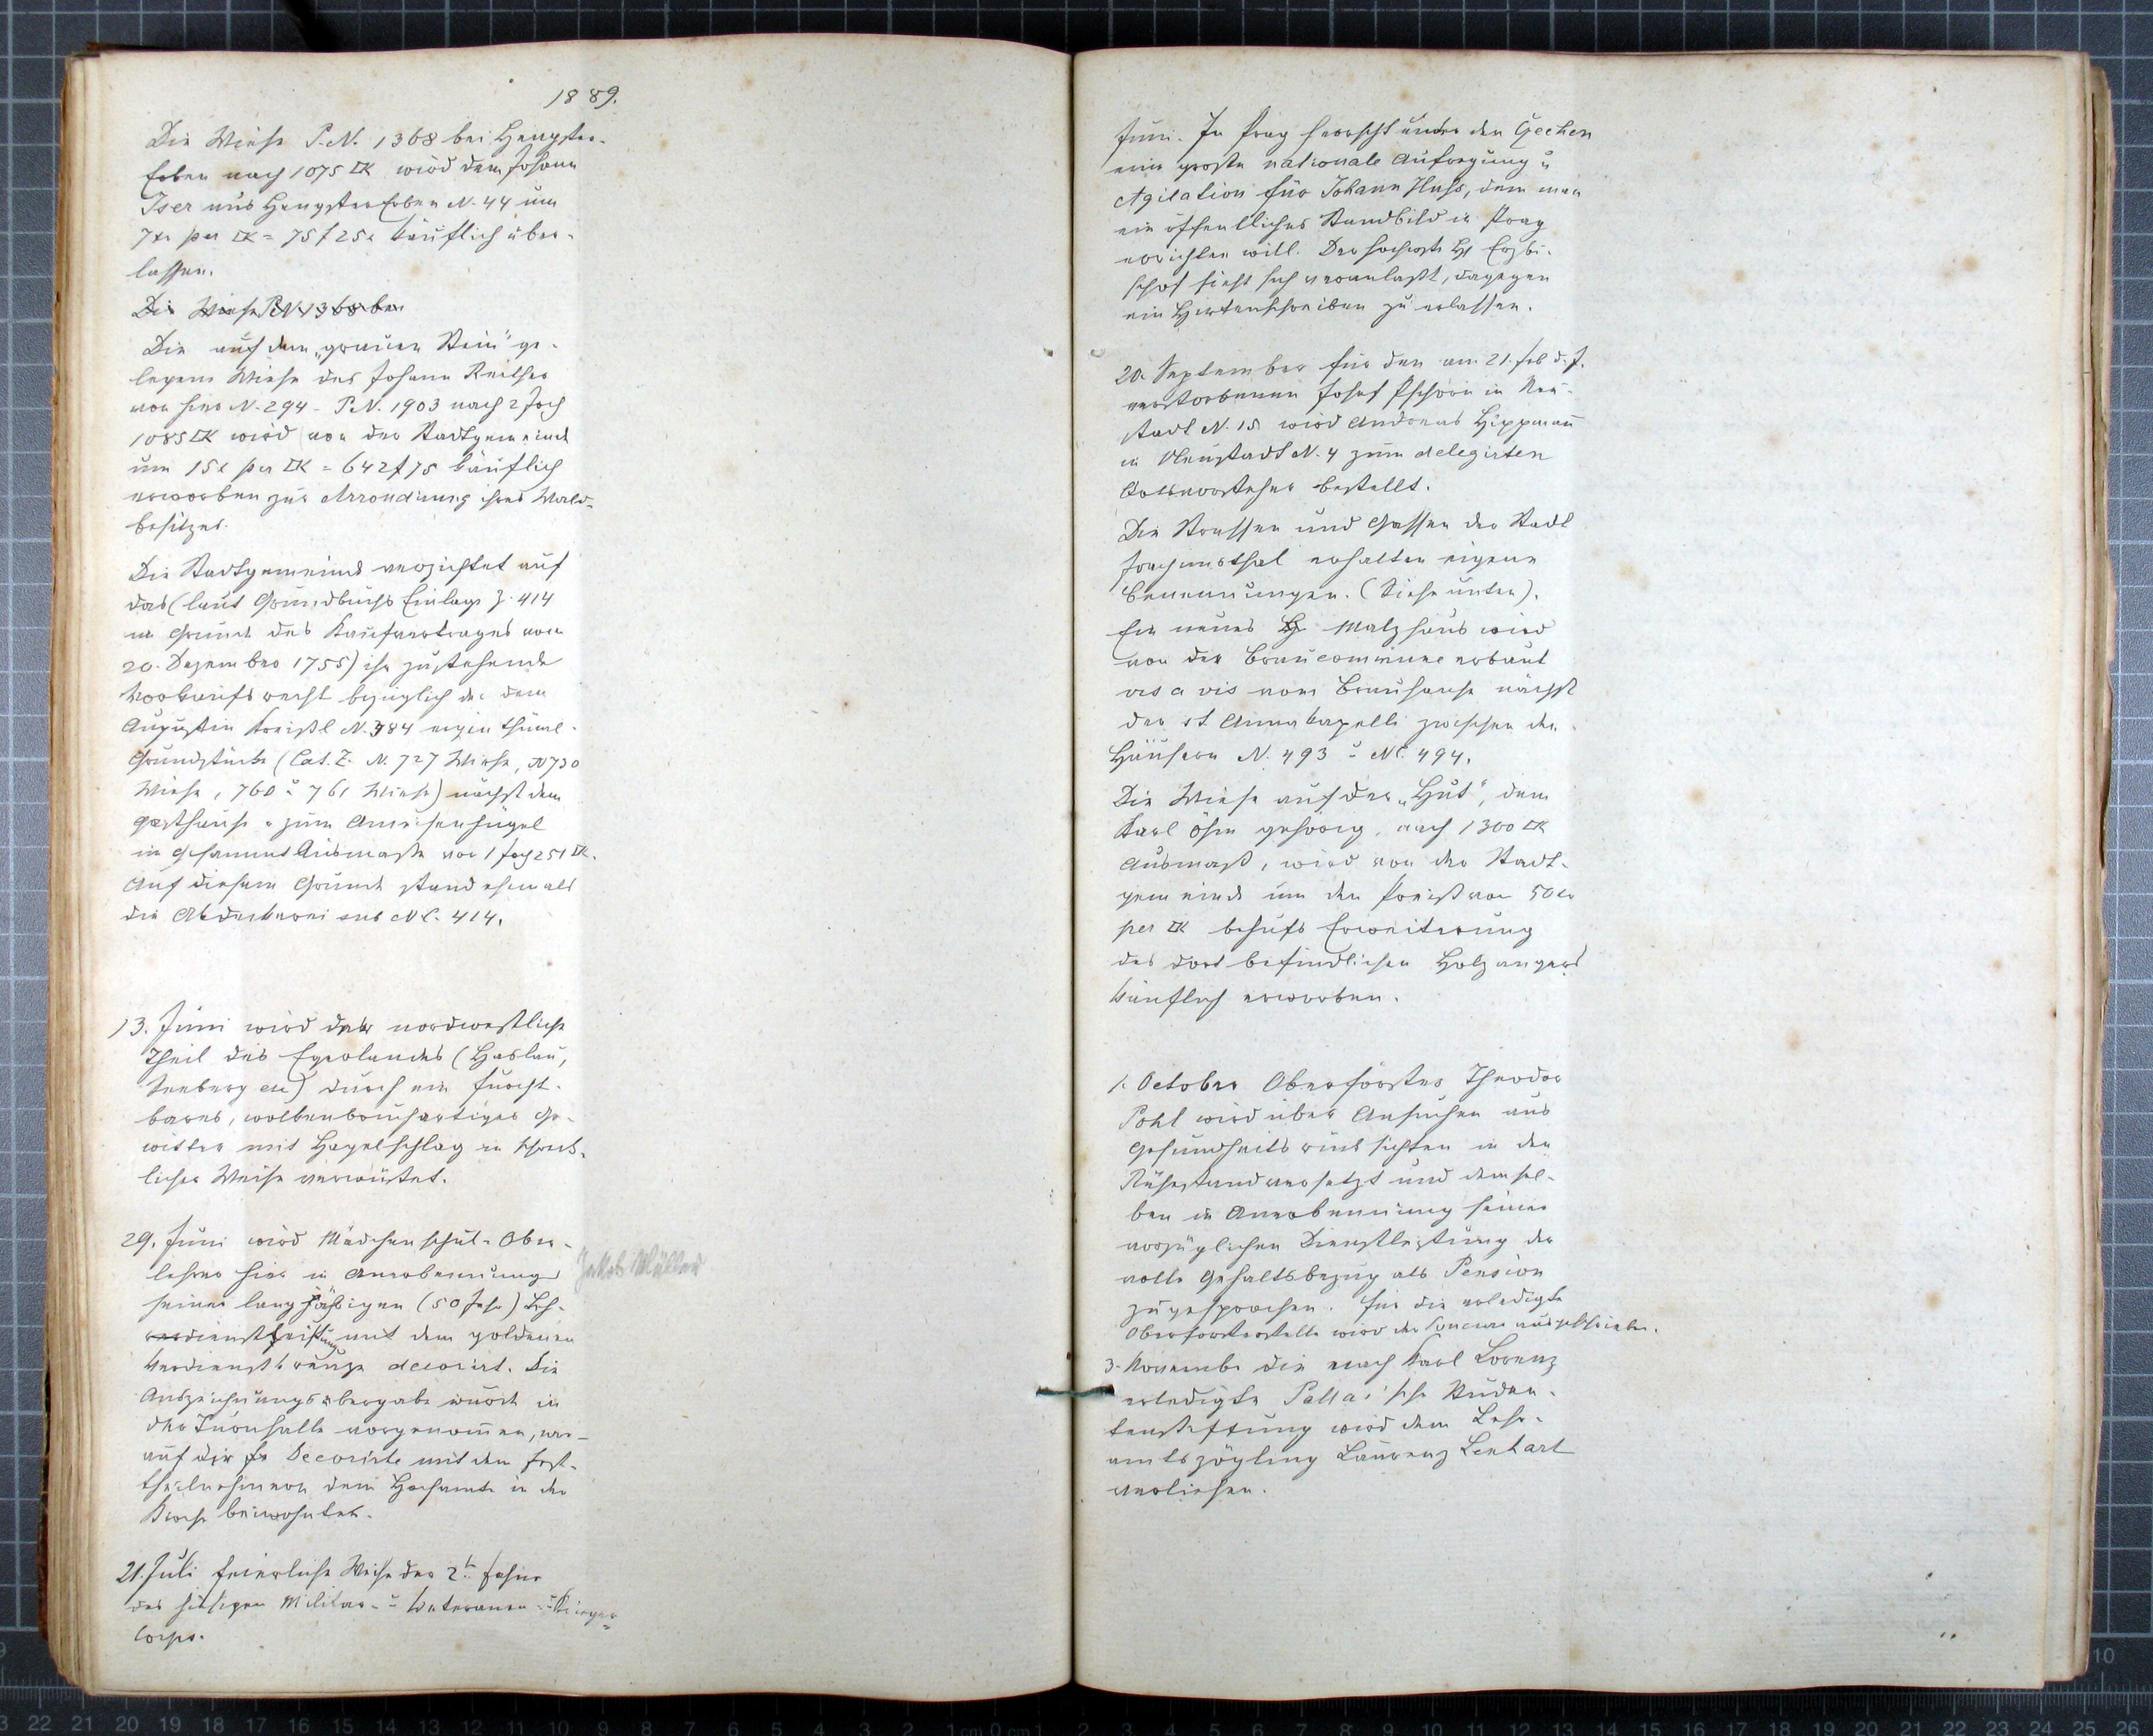 1889.
Die Wiese P.N. 1368 bei Hengster-
Erben nach 1075 □K wird dem Johann
Iser aus Hengster Erben N. 44 um
7 xr per □K = 75 f 25 x käuflich über-
lassen.
Die Wiese P.N. 1368 bei
Die auf dem „grauen Stein" ge-
legene Wiese des Johann Reither
von hier N. 294 - P.N. 1903 nach 2 Joch
1085 □K wird von der Stadtgemeinde
um 15 x per □K = 642 f 75 käuflich
erworben zur Arrondirung ihres Wald-
besitzes.
Die Stadtgemeinde verzichtet auf
das (laut Grundbuchs Einlage Z. 414
im Grunde des Kaufvertrages vom
20. Dezember 1755) ihr zustehende
Vorkaufsrecht bezüglich der dem
Augustin Kreißl N. 384 eigenthüml.
Grundstücke (Cat. Z. N. 727 Wiese, N 730
Wiese, 760 u 761 Wiese) nächst dem
Gasthause „zum Ameisenhügel
im Gesammt Ausmaße von 1 Joch 251 □K.
Auf diesem Grunde stand ehemals
die Abdeckerei sub NC. 414.
13. Juni wird der nordwestliche
Theil des Egerlandes (Haslau,
Seeberg etc) durch ein furcht-
bares, wolkenbruchartiges Ge-
witter mit Hagelschlag in schreck-
licher Weise verwüstet.
29. Juni wird Mädchenschul-Ober-
lehrer hier in Anerkennung
Jakob Müller
seiner langjährigen (50 Jahr) Leh-
rerdienstleistung mit dem goldenen
Verdienstkreuze decorirt. Die
Auszeichnungsübergabe wurde in
der Turnhalle vorgenommen, wor-
auf der Decorirte mit den Fest-
theilnehmern dem Hochamte in der
Kirche beiwohnten.
21. Juli feierliche Weihe der 2t. Fahne
des hiesigen Militär- u Veteranen- u Krieger-
Corps.
Juni. In Prag herrscht unter den Čechen
eine große nationale Aufregung u
Agitation für Johann Huß, dem man
ein öffentliches Standbild in Prag
errichten will. Der hochwste H. Erzbi-
schof sieht sich veranlaßt, dagegen
ein Hirtenschreiben zu erlassen.
20. September für den am 21. Feb d. J.
verstorbenen Josef Pschörn in Neu-
stadt N. 15 wird Andreas Hippmañ
in Neustadt N. 4 zum delegirten
Ortsvorsteher bestellt.
Die Strassen und Gassen der Stadt
Joachimsthal erhalten eigene
Benennungen. (Siehe unten).
Ein neues Malzhaus wird
von der Braucommune erbaut
vis a vis vom Brauhause nächst
der St. Annakapelle zwischen den
Häusern N. 493 u NC. 494.
Die Wiese auf der „Hut", dem
Karl Öhm gehörig, nach 1300 □K
Ausmaß, wird von der Stadt-
gemeinde um den Preiß von 50 xr
per □K behufs Erweiterung
des dort befindlichen Holzangers
käuflich erworben.
1. October Oberförster Theodor
Pohl wird über Ansuchen aus
Gesundheitsrücksichten in den
Ruhestand versetzt und demsel-
ben in Anerkennung seiner
vorzüglichen Dienstleistung der
volle Gehaltsbezug als Pension
zugesprochen. Für die erledigte
Oberförsterstelle wird der Concurs ausgeschrieben.
3. November die nach Karl Lorenz
erledigte Palla'sche Studen-
tenstiftung wird dem Lehr-
amtszögling Laurenz Lenhart
verliehen.